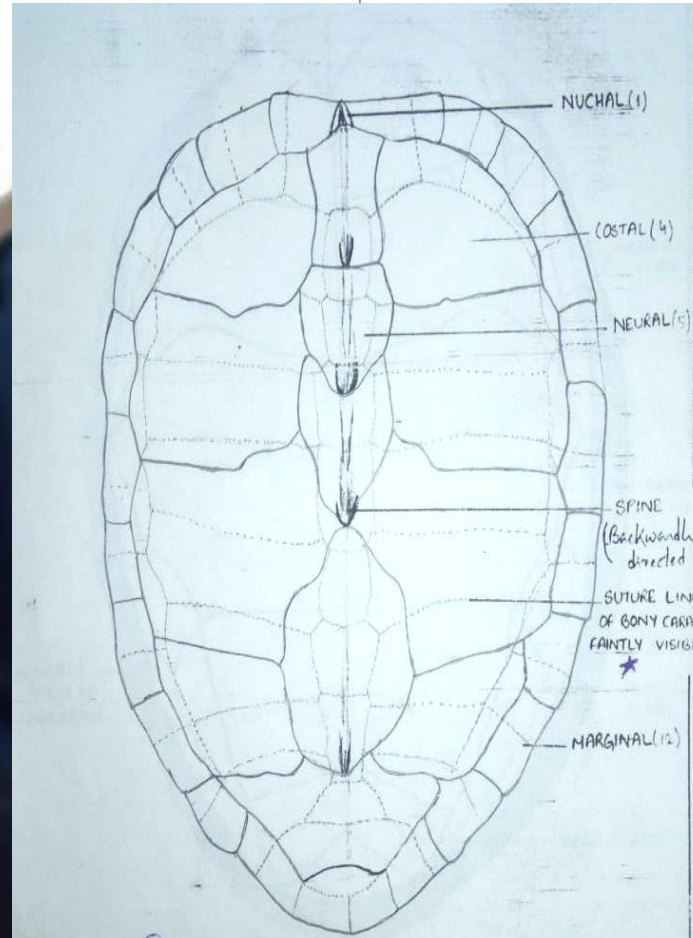 NUCHAL(1)
COSTAL(4)
NEURAL(5)
SPINE
(Backwardly
directed
SUTURE LIN
OF BONY CARA
FAINTLY VISIB
MARGINAL(12)